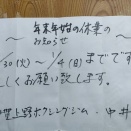 年末年始の休業の
お知らせ
30(火)〜1/4(日)までです
しくお願い致します。
上野ボクシングジム 中井